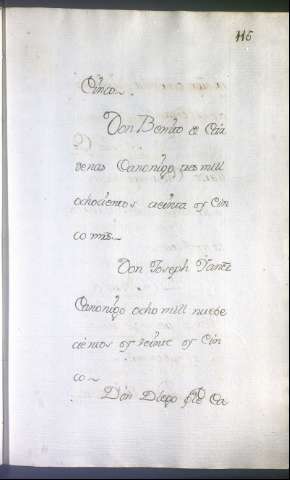 115
Cinco~
Don Benito de Car
denas Canonigo, tres mill
ochocientos treinta y Cin
co mrs~
Don Joseph Yanez
Canonigo ocho mill nuebe
cientos y veinte y Cin
co~
Don Diego